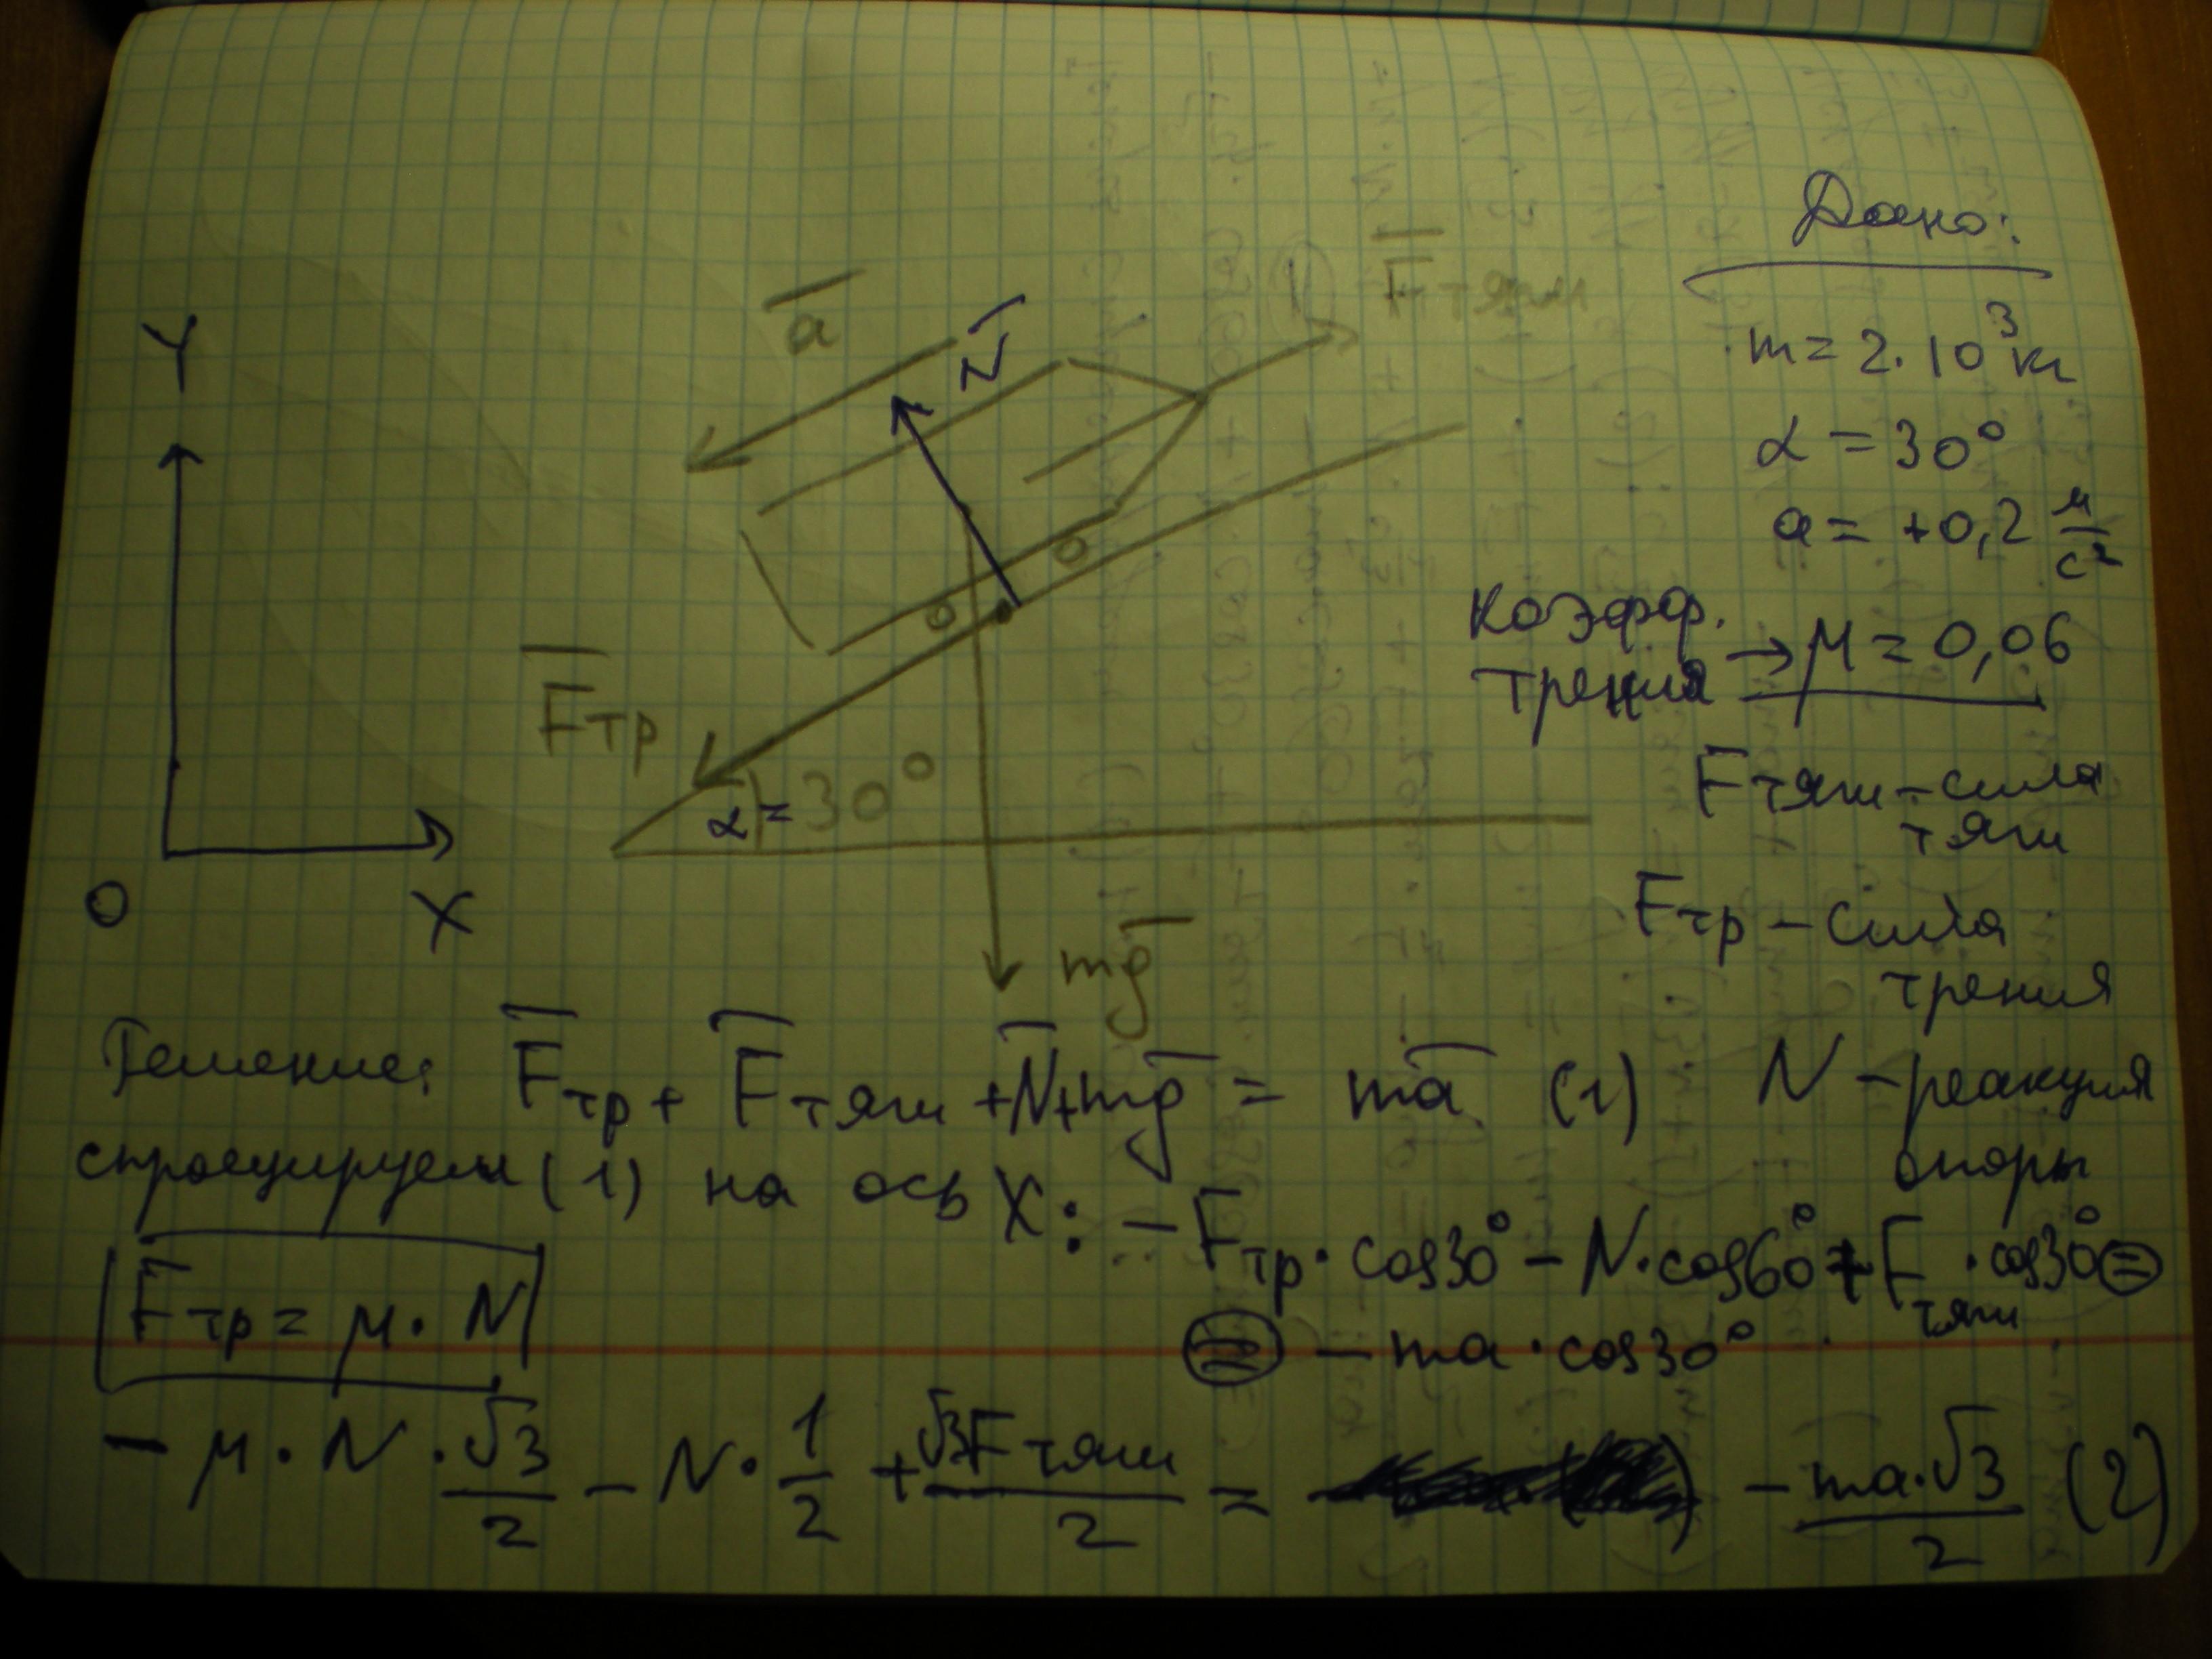 Дано:
m = 2·10³ кг
α = 30°
a = +0,2 м/с²
коэфф. трения → μ = 0,06
Fтяги – сила тяги
Fтр – сила трения
N – реакция опоры
Y
O
X
a
N
Fтяги
Fтр
α = 30°
mg
Решение: Fтр + Fтяги + N + mg = ma (1)
спроецируем (1) на ось X: – Fтр · cos30° – N · cos60° + Fтяги · cos30° =
= – ma · cos30°
Fтр = μ · N
– μ · N · √3/2 – N · 1/2 + √3Fтяги/2 = – ma·√3/2 (2)